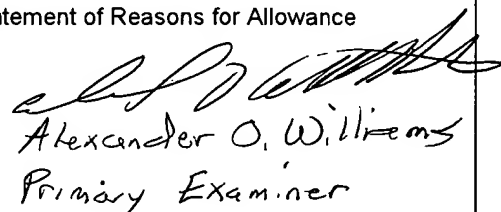 atement of Reasons for Allowance
Alexander O. Williams
Primary Examiner